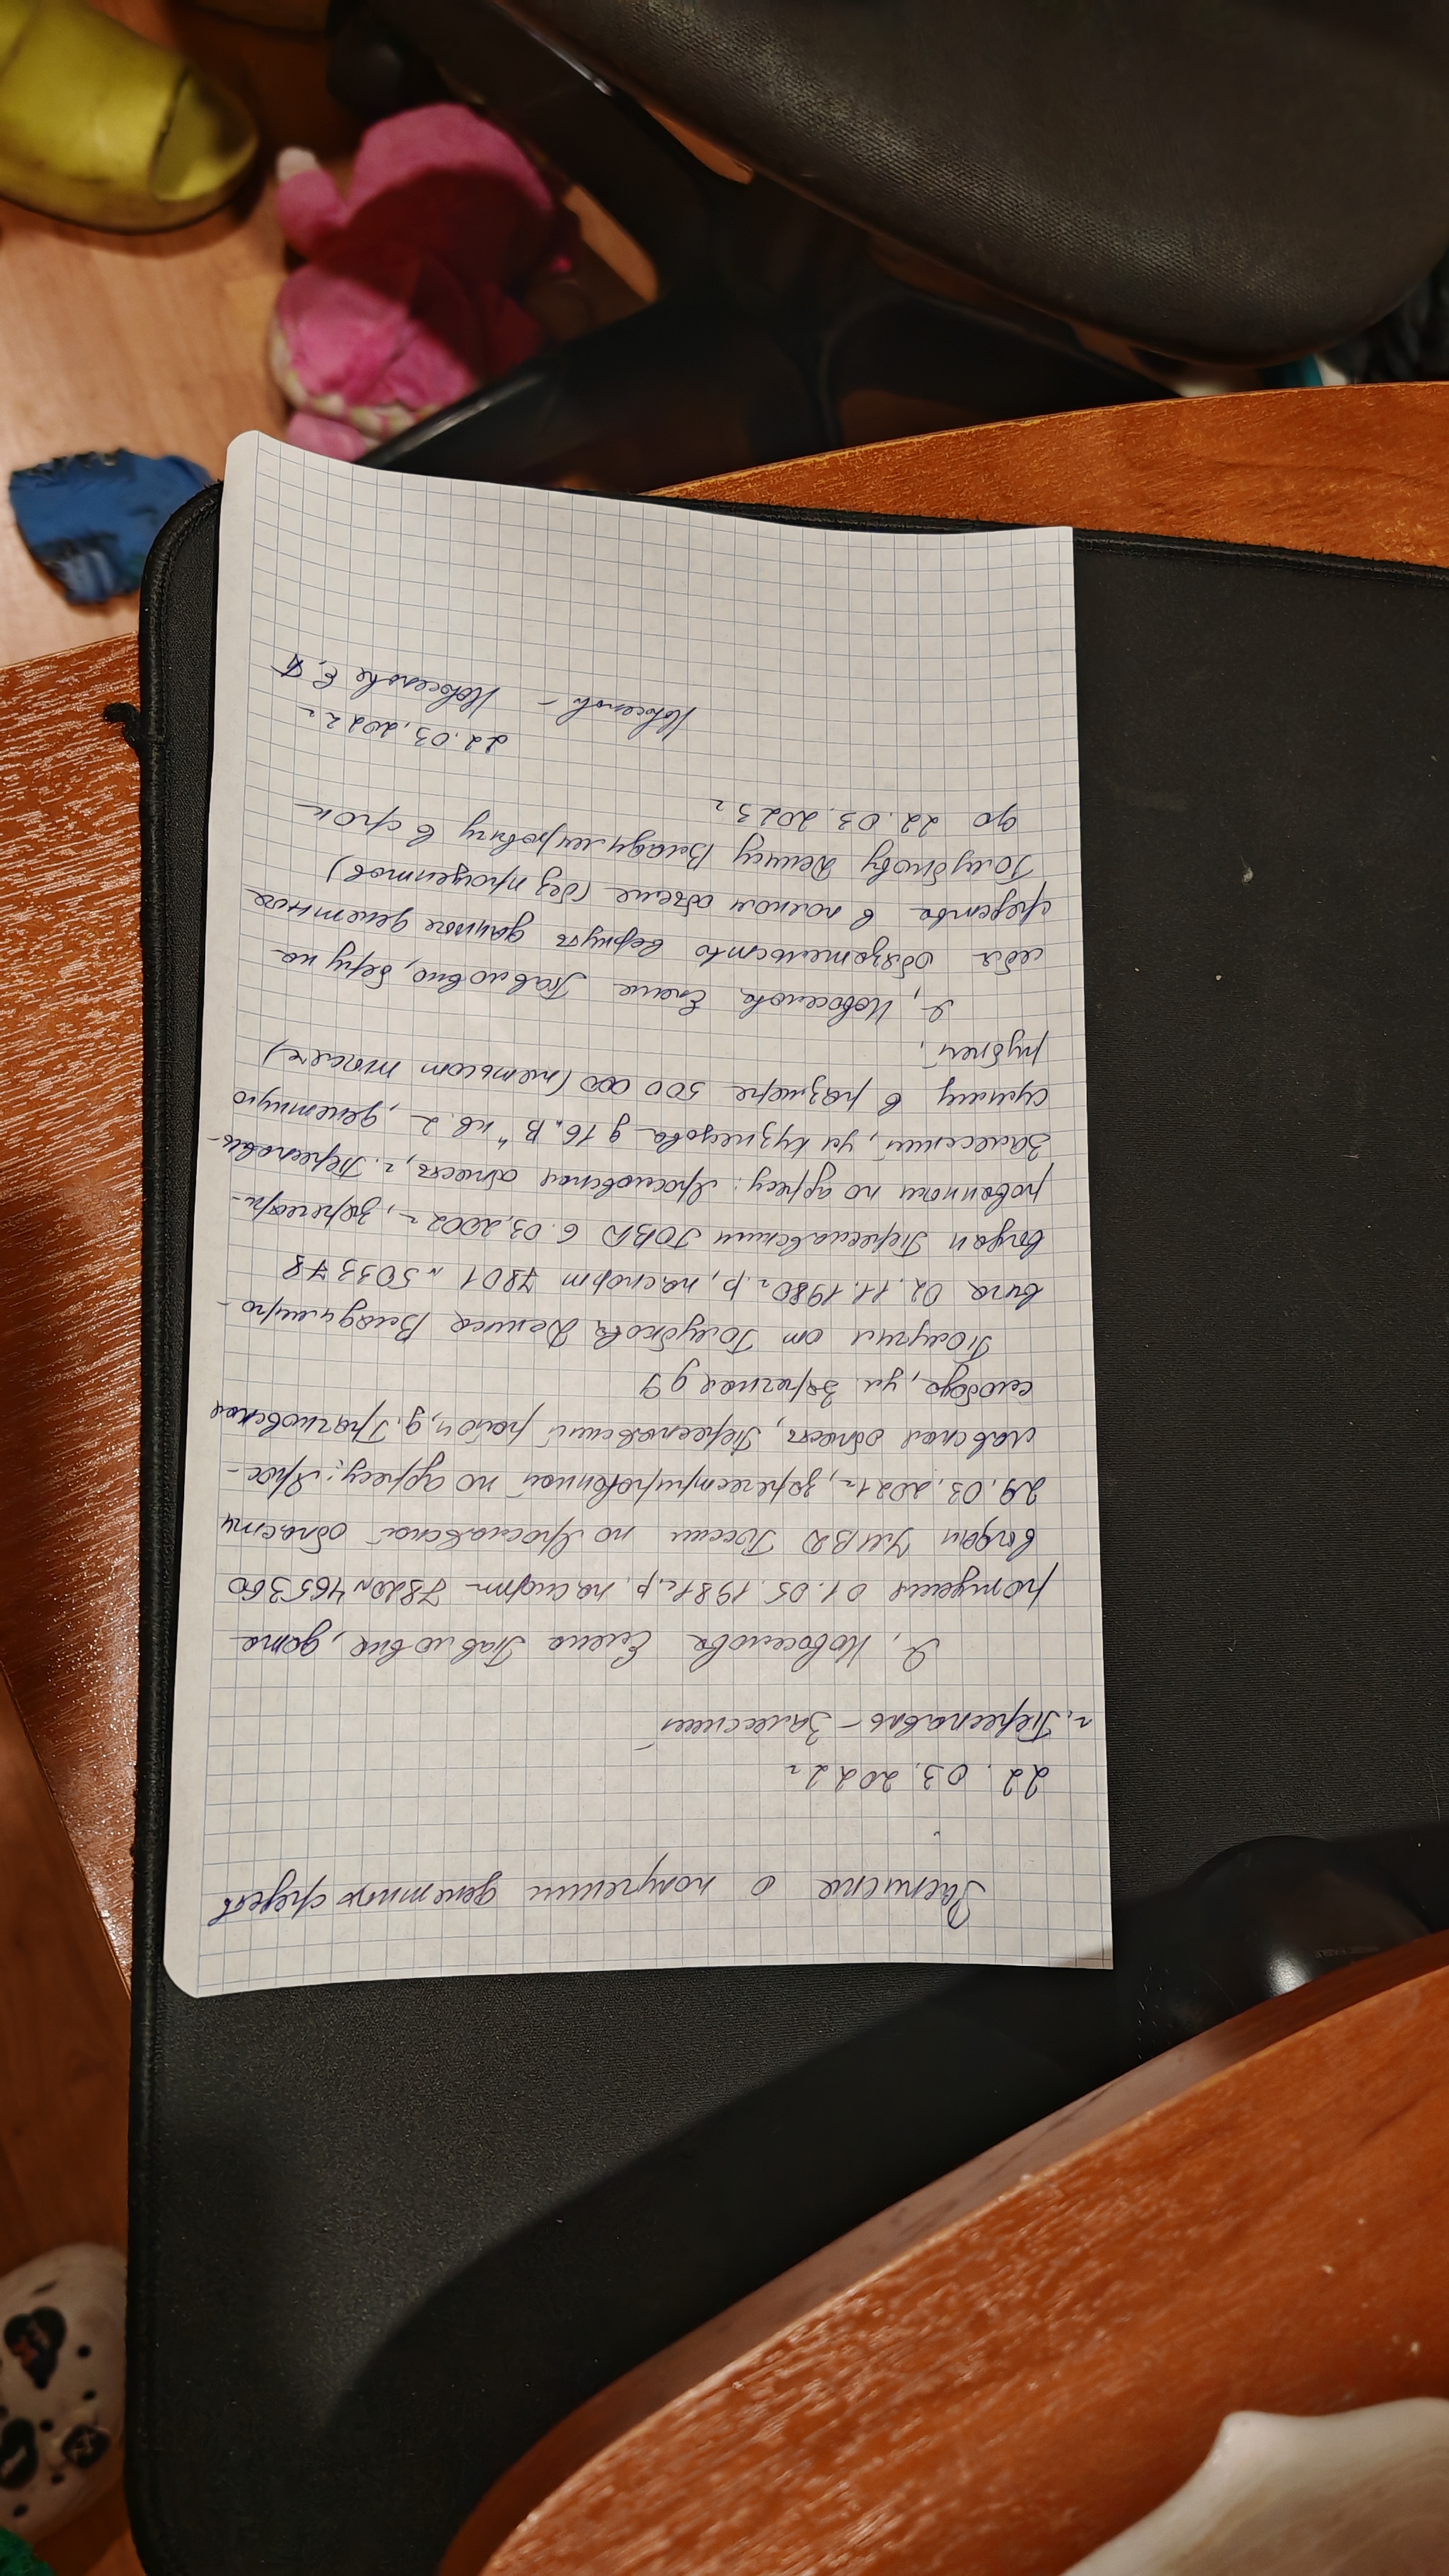 Расписка о получении денежных средств
22.03.2022 г
г. Переславль-Залесский
Я, Новоселова Елена Павловна, дата
рождения 01.05.1981 г.р, паспорт 7820 № 465360
выдан УМВД России по Ярославской области
29.03.2021 г, зарегестрированной по адресу: Яро-
славская область, Переславский район, д. Грачковская
слобода, ул. Заречная д 9
Получил от Голубкова Дениса Владимиро-
вича 02.11.1980 г.р, паспорт 7801 № 503378
выдан Переславским ГОВД 6.03.2002 г, зарегестри-
рованном по адресу: Ярославская область, г. Переславль-
Залесский, ул Кузнецова д 16 "В" кв. 2, денежную
сумму в размере 500 000 (пятьсот тысяч)
рублей,
Я, Новоселова Елена Павловна, беру на
себя обязательство вернуть данные денежные
средства в полном объеме (без процентов)
Голубкову Денису Владимировичу в срок
до 22.03.2023 г
22.03.2022 г
Новоселов - Новоселова Е.П